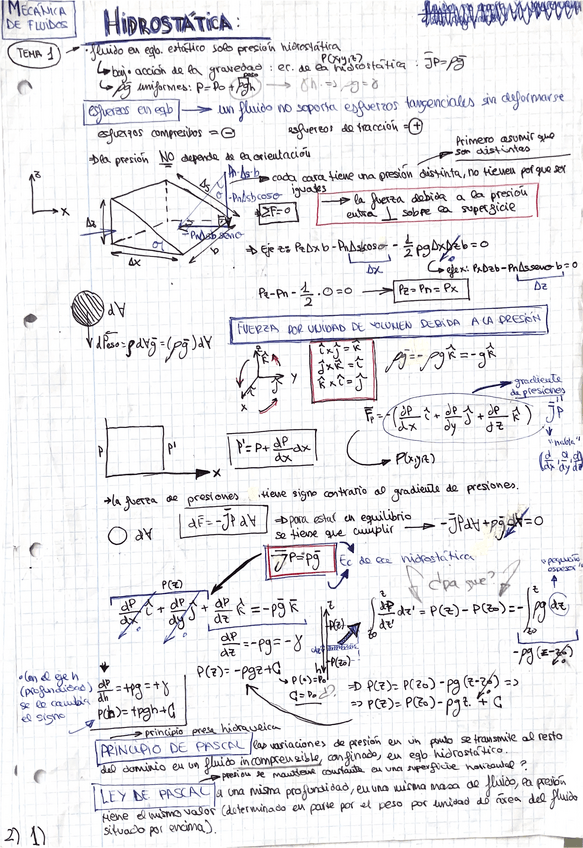 MECÁNICA
DE FLUIDOS
HIDROSTÁTICA:
TEMA 1
fluido en eqb. estático solo presión hidrostática
P(x,y,z)
bajo acción de la gravedad: ec. de la hidrostática: ∇P=ρḡ
ρḡ uniformes: P=P₀+ρgh
esfuerzos en eqb → un fluido no soporta esfuerzos tangenciales sin deformarse
esfuerzos compresibos = ⊖ esfuerzos de tracción = ⊕
Primero asumir que
son distintas
⇒ la presión NO depende de la orientación
Pn·Δs·b
cada cara tiene una presión distinta, no tienen por que ser
iguales
-PnΔsbcosα
ΣF=0
→ la fuerza debida a la presión
entra ⊥ sobre la superficie
z
x
Δz
Δs
-PnΔsb senα
α
Δx
b
⇒ Eje z: PzΔxb - PnΔsbcosα - 1/2 ρgΔxΔzb = 0
Δx
eje x: PxΔzb - PnΔs senα·b = 0
Δz
Pz - Pn - 1/2 · 0 = 0 → Pz = Pn = Px
d∀
dPeso = ρd∀ḡ = (ρḡ)d∀
FUERZA POR UNIDAD DE VOLUMEN DEBIDA A LA PRESIÓN
z
y
x
î x ĵ = k̂
ĵ x k̂ = î
k̂ x î = ĵ
ρḡ = -ρg k̂ = -g k̂
gradiente
de presiones
F̄p = -(∂P/∂x î + ∂P/∂y ĵ + ∂P/∂z k̂) ∇P
P(x,y,z)
"nabla"
(d/dx, d/dy, d/dz)
P P'
x
P' = P + dP/dx dx
→ la fuerza de presiones tiene signo contrario al gradiente de presiones.
d∀
dF̄ = -∇P d∀ ⇒ para estar en equilibrio
se tiene que cumplir → -∇Pd∀ + ρḡ d∀ = 0
∇P = ρḡ Ec de ec hidrostática
P(z)
dP/dx î + dP/dy ĵ + dP/dz k̂ = -ρg k̂
dP/dz = -ρg = -γ
z
P(z)
P(z₀)
¿por que?
"pequeño
espesor"
∫ dP/dz' dz' = P(z) - P(z₀) = -∫ ρg dz
-ρg(z-z₀)
con el eje h
(profundidad)
se le cambia
el signo
dP/dh = +ρg = +γ
P(h) = +ρgh + C
P(z) = -ρgz + C
P(0) = P₀
C = P₀
⇒ P(z) = P(z₀) - ρg(z-z₀) =>
=> P(z) = P(z₀) - ρgz + C
principio presa hidraulica
PRINCIPIO DE PASCAL las variaciones de presión en un punto se transmite al resto
del dominio en un fluido incompresible, confinado, en eqb hidrostático.
presión se mantiene constante en una superficie horizontal?
LEY DE PASCAL a una misma profundidad, en una misma masa de fluido, la presión
tiene el mismo valor (determinado en parte por el peso por unidad de área del fluido
situado por encima).
2) 1)